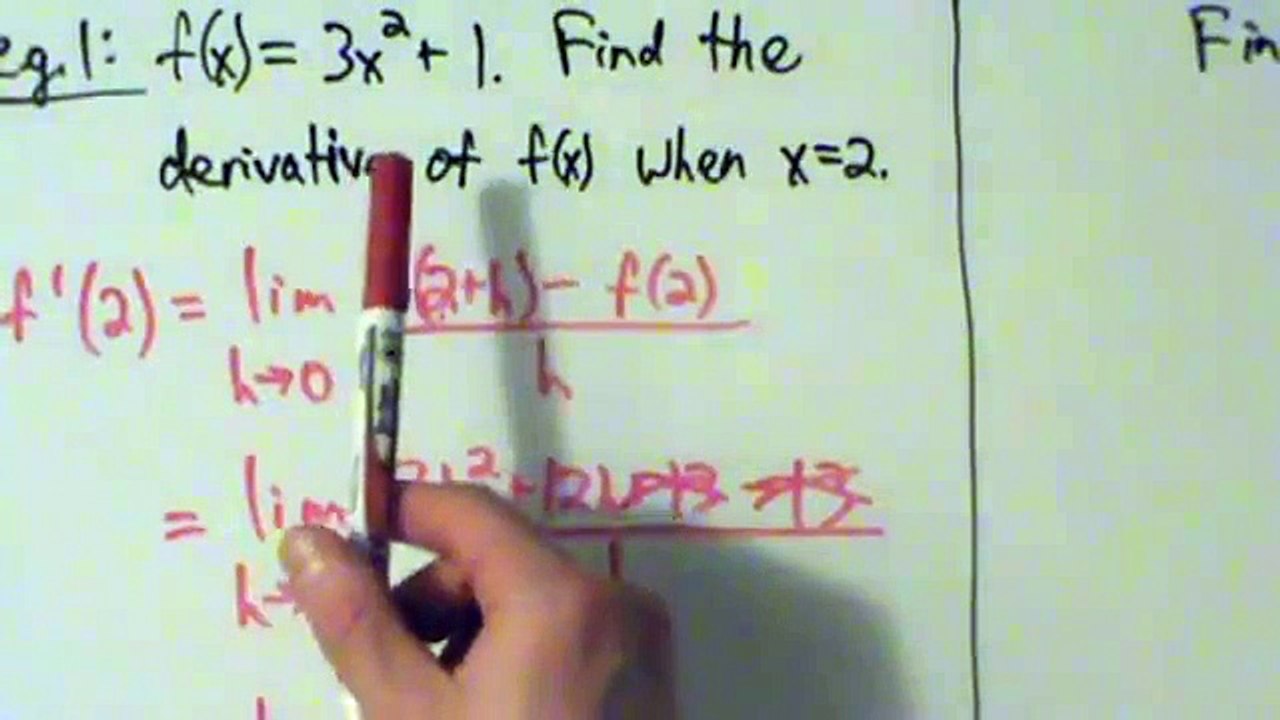 eg.1: f(x) = 3x²+1. Find the
derivative of f(x) when x=2.
f'(2) = lim (2+h) - f(2)
h→0 h
= lim +12h+13 -13
h→
Fin